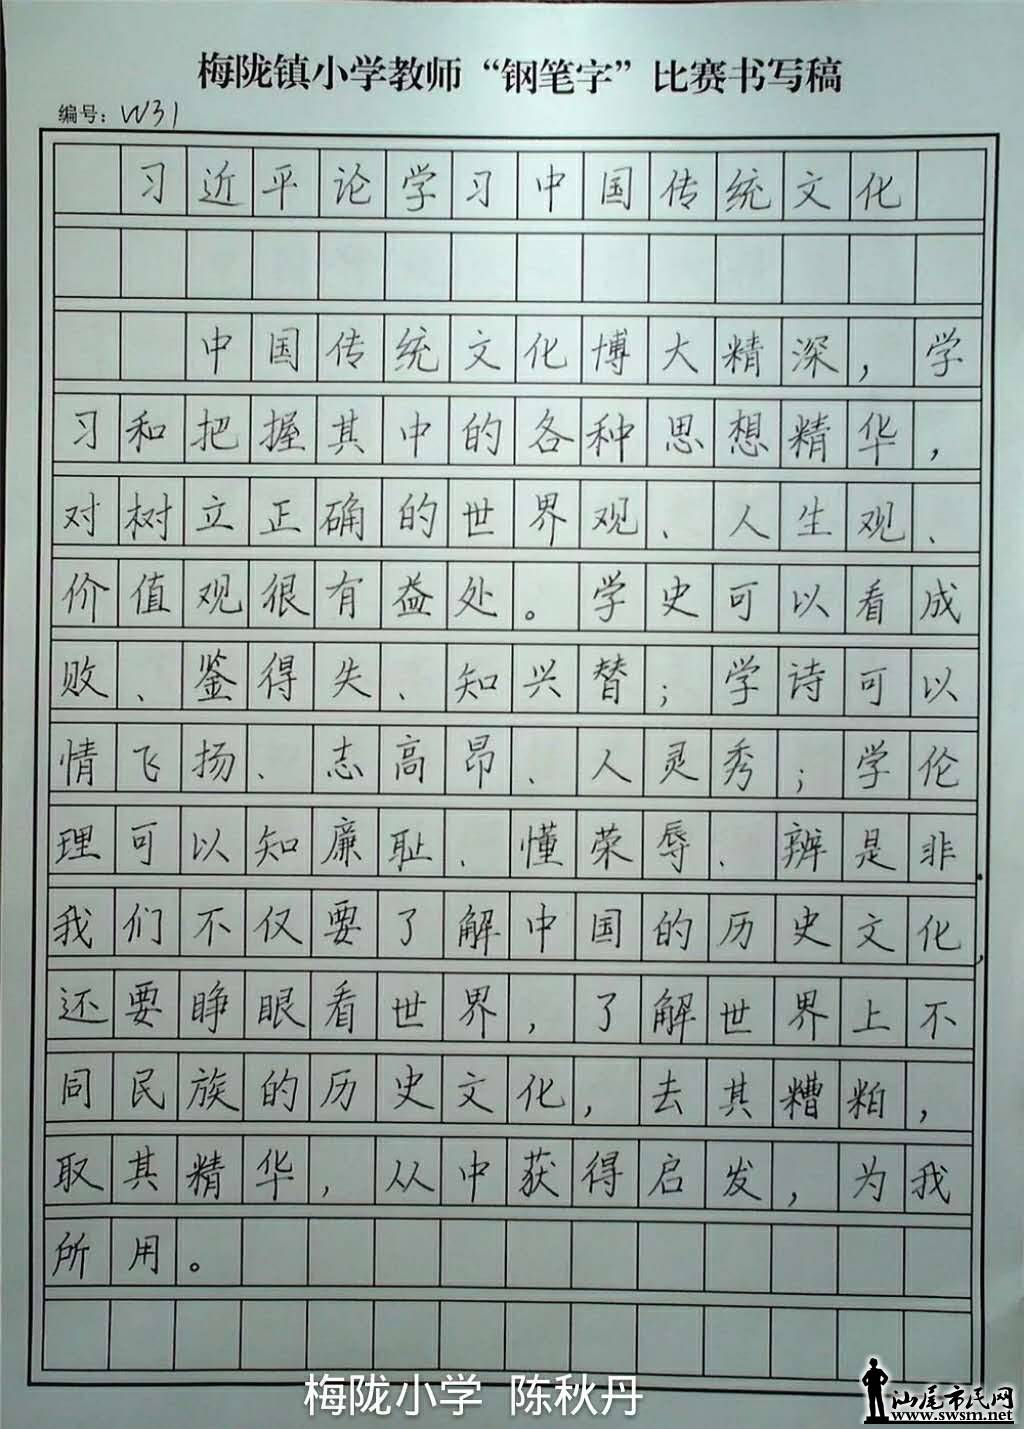 梅陇镇小学教师“钢笔字”比赛书写稿
编号：W31
习近平论学习中国传统文化
中国传统文化博大精深，学
习和把握其中的各种思想精华，
对树立正确的世界观、人生观、
价值观很有益处。学史可以看成
败、鉴得失、知兴替；学诗可以
情飞扬、志高昂、人灵秀；学伦
理可以知廉耻、懂荣辱、辨是非.
我们不仅要了解中国的历史文化,
还要睁眼看世界，了解世界上不
同民族的历史文化，去其糟粕，
取其精华，从中获得启发，为我
所用。
梅陇小学 陈秋丹
汕尾市民网
www.swsm.net